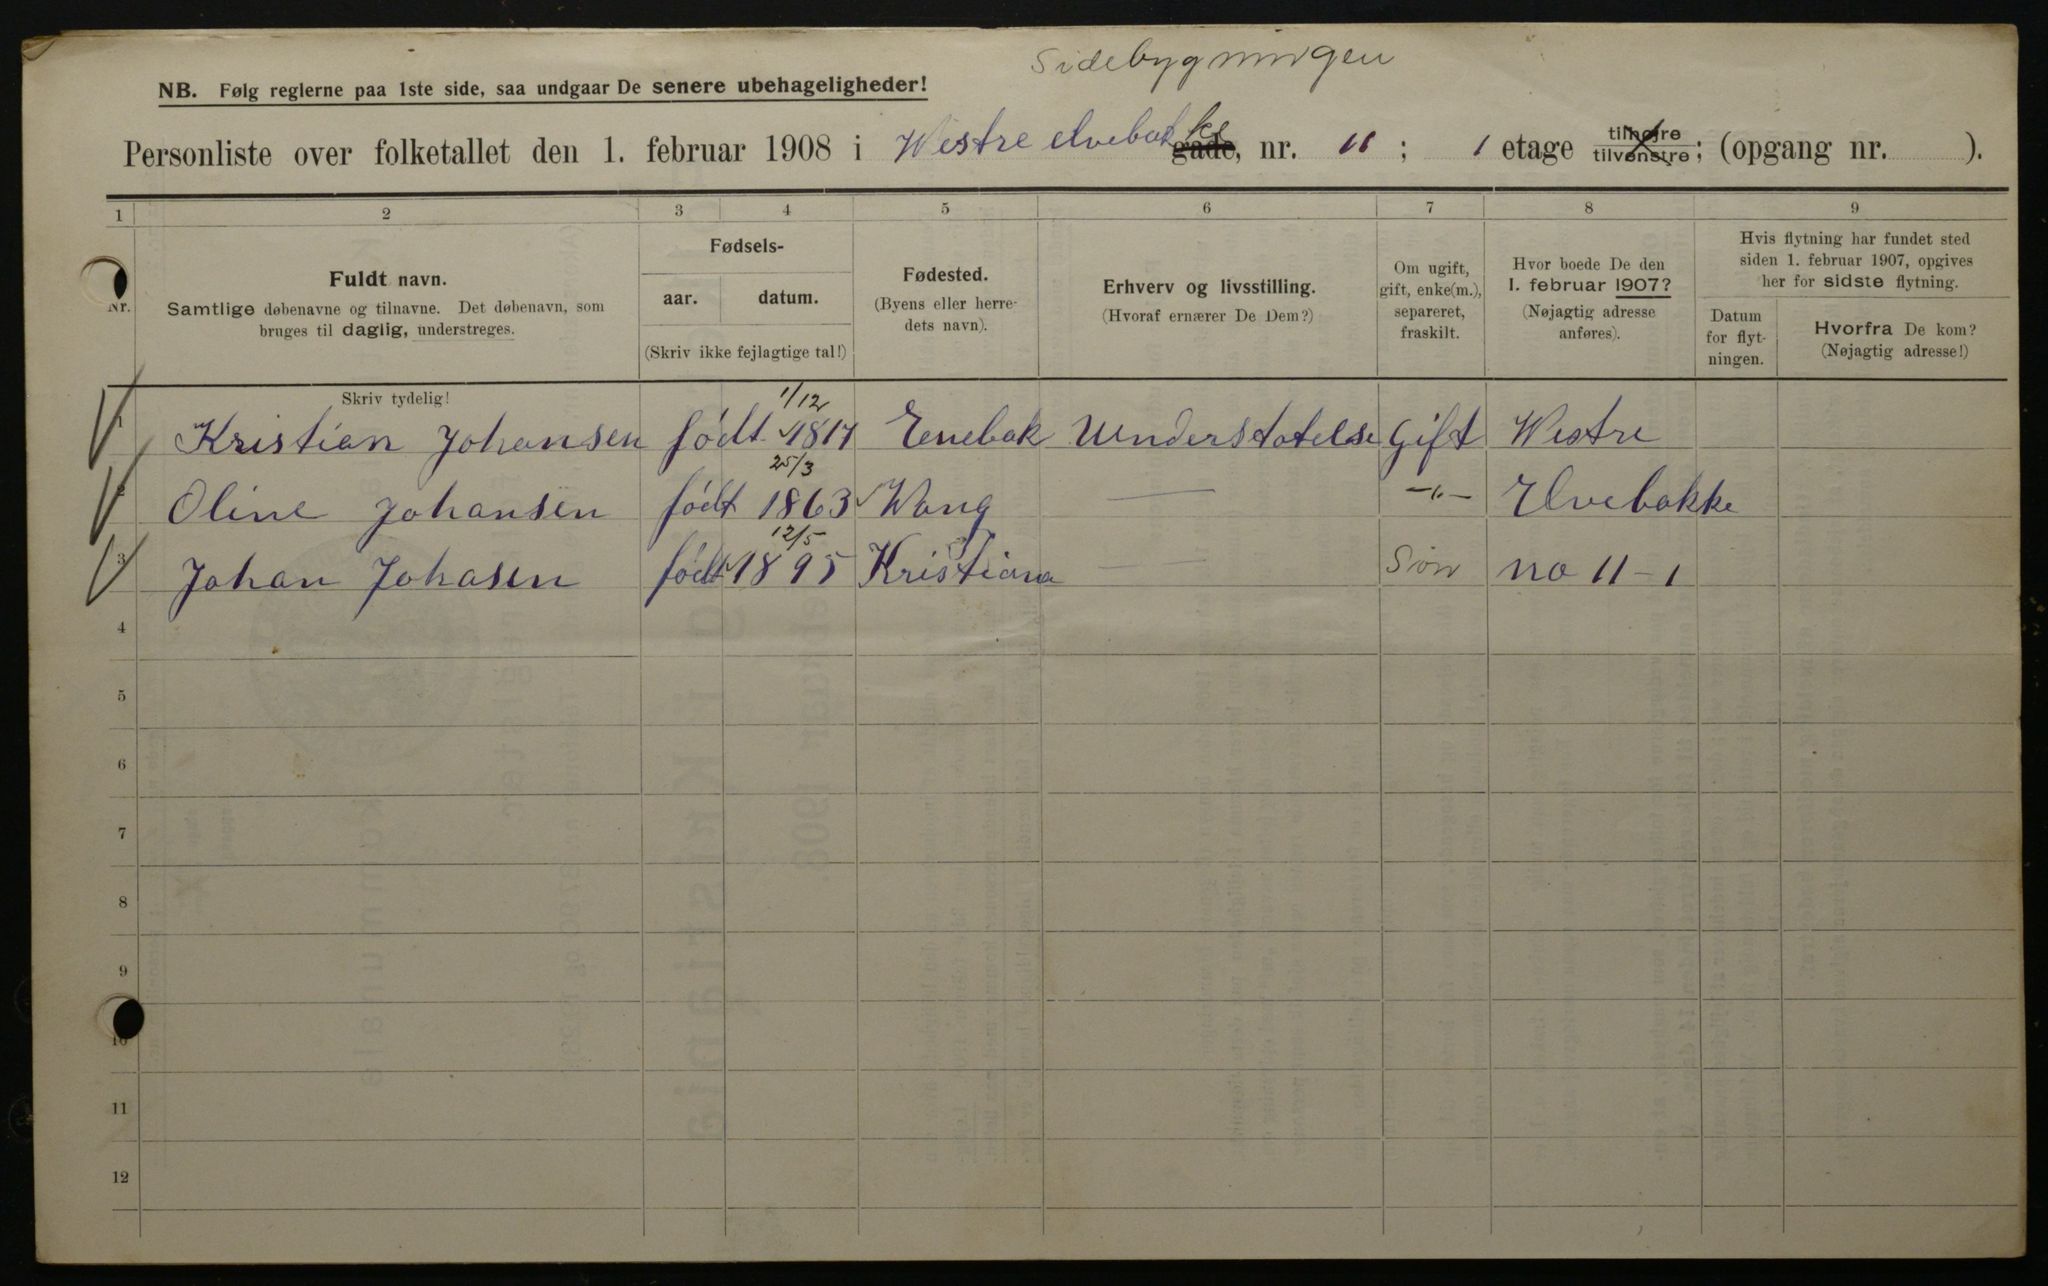 Sidebygningen
NB. Følg reglerne paa 1ste side, saa undgaar De senere ubehageligheder!
Personliste over folketallet den 1. februar 1908 i Westre elvebakke gade, nr. 11 ; 1 etage tilhøjre tilvenstre ; (opgang nr. ).
1 2 3 4 5 6 7 8 9
Nr.
Fuldt navn.
Samtlige døbenavne og tilnavne. Det døbenavn, som
bruges til daglig, understreges.
Fødsels-
aar. datum.
(Skriv ikke fejlagtige tal!)
Fødested.
(Byens eller herre-
dets navn).
Erhverv og livsstilling.
(Hvoraf ernærer De Dem?)
Om ugift,
gift, enke(m.),
separeret,
fraskilt.
Hvor boede De den
1. februar 1907?
(Nøjagtig adresse
anføres).
Hvis flytning har fundet sted
siden 1. februar 1907, opgives
her for sidste flytning.
Datum
for flyt-
ningen.
Hvorfra De kom?
(Nøjagtig adresse!)
Skriv tydelig!
1/12
1 Kristian Johansen født 1817 Enebak Understotelse Gift Westre
25/3
2 Oline Johansen født 1863 Wang — -"- Elvebakke
12/5
3 Johan Johasen født 1895 Kristiana — Søn no 11-1
4
5
6
7
8
9
10
11
12